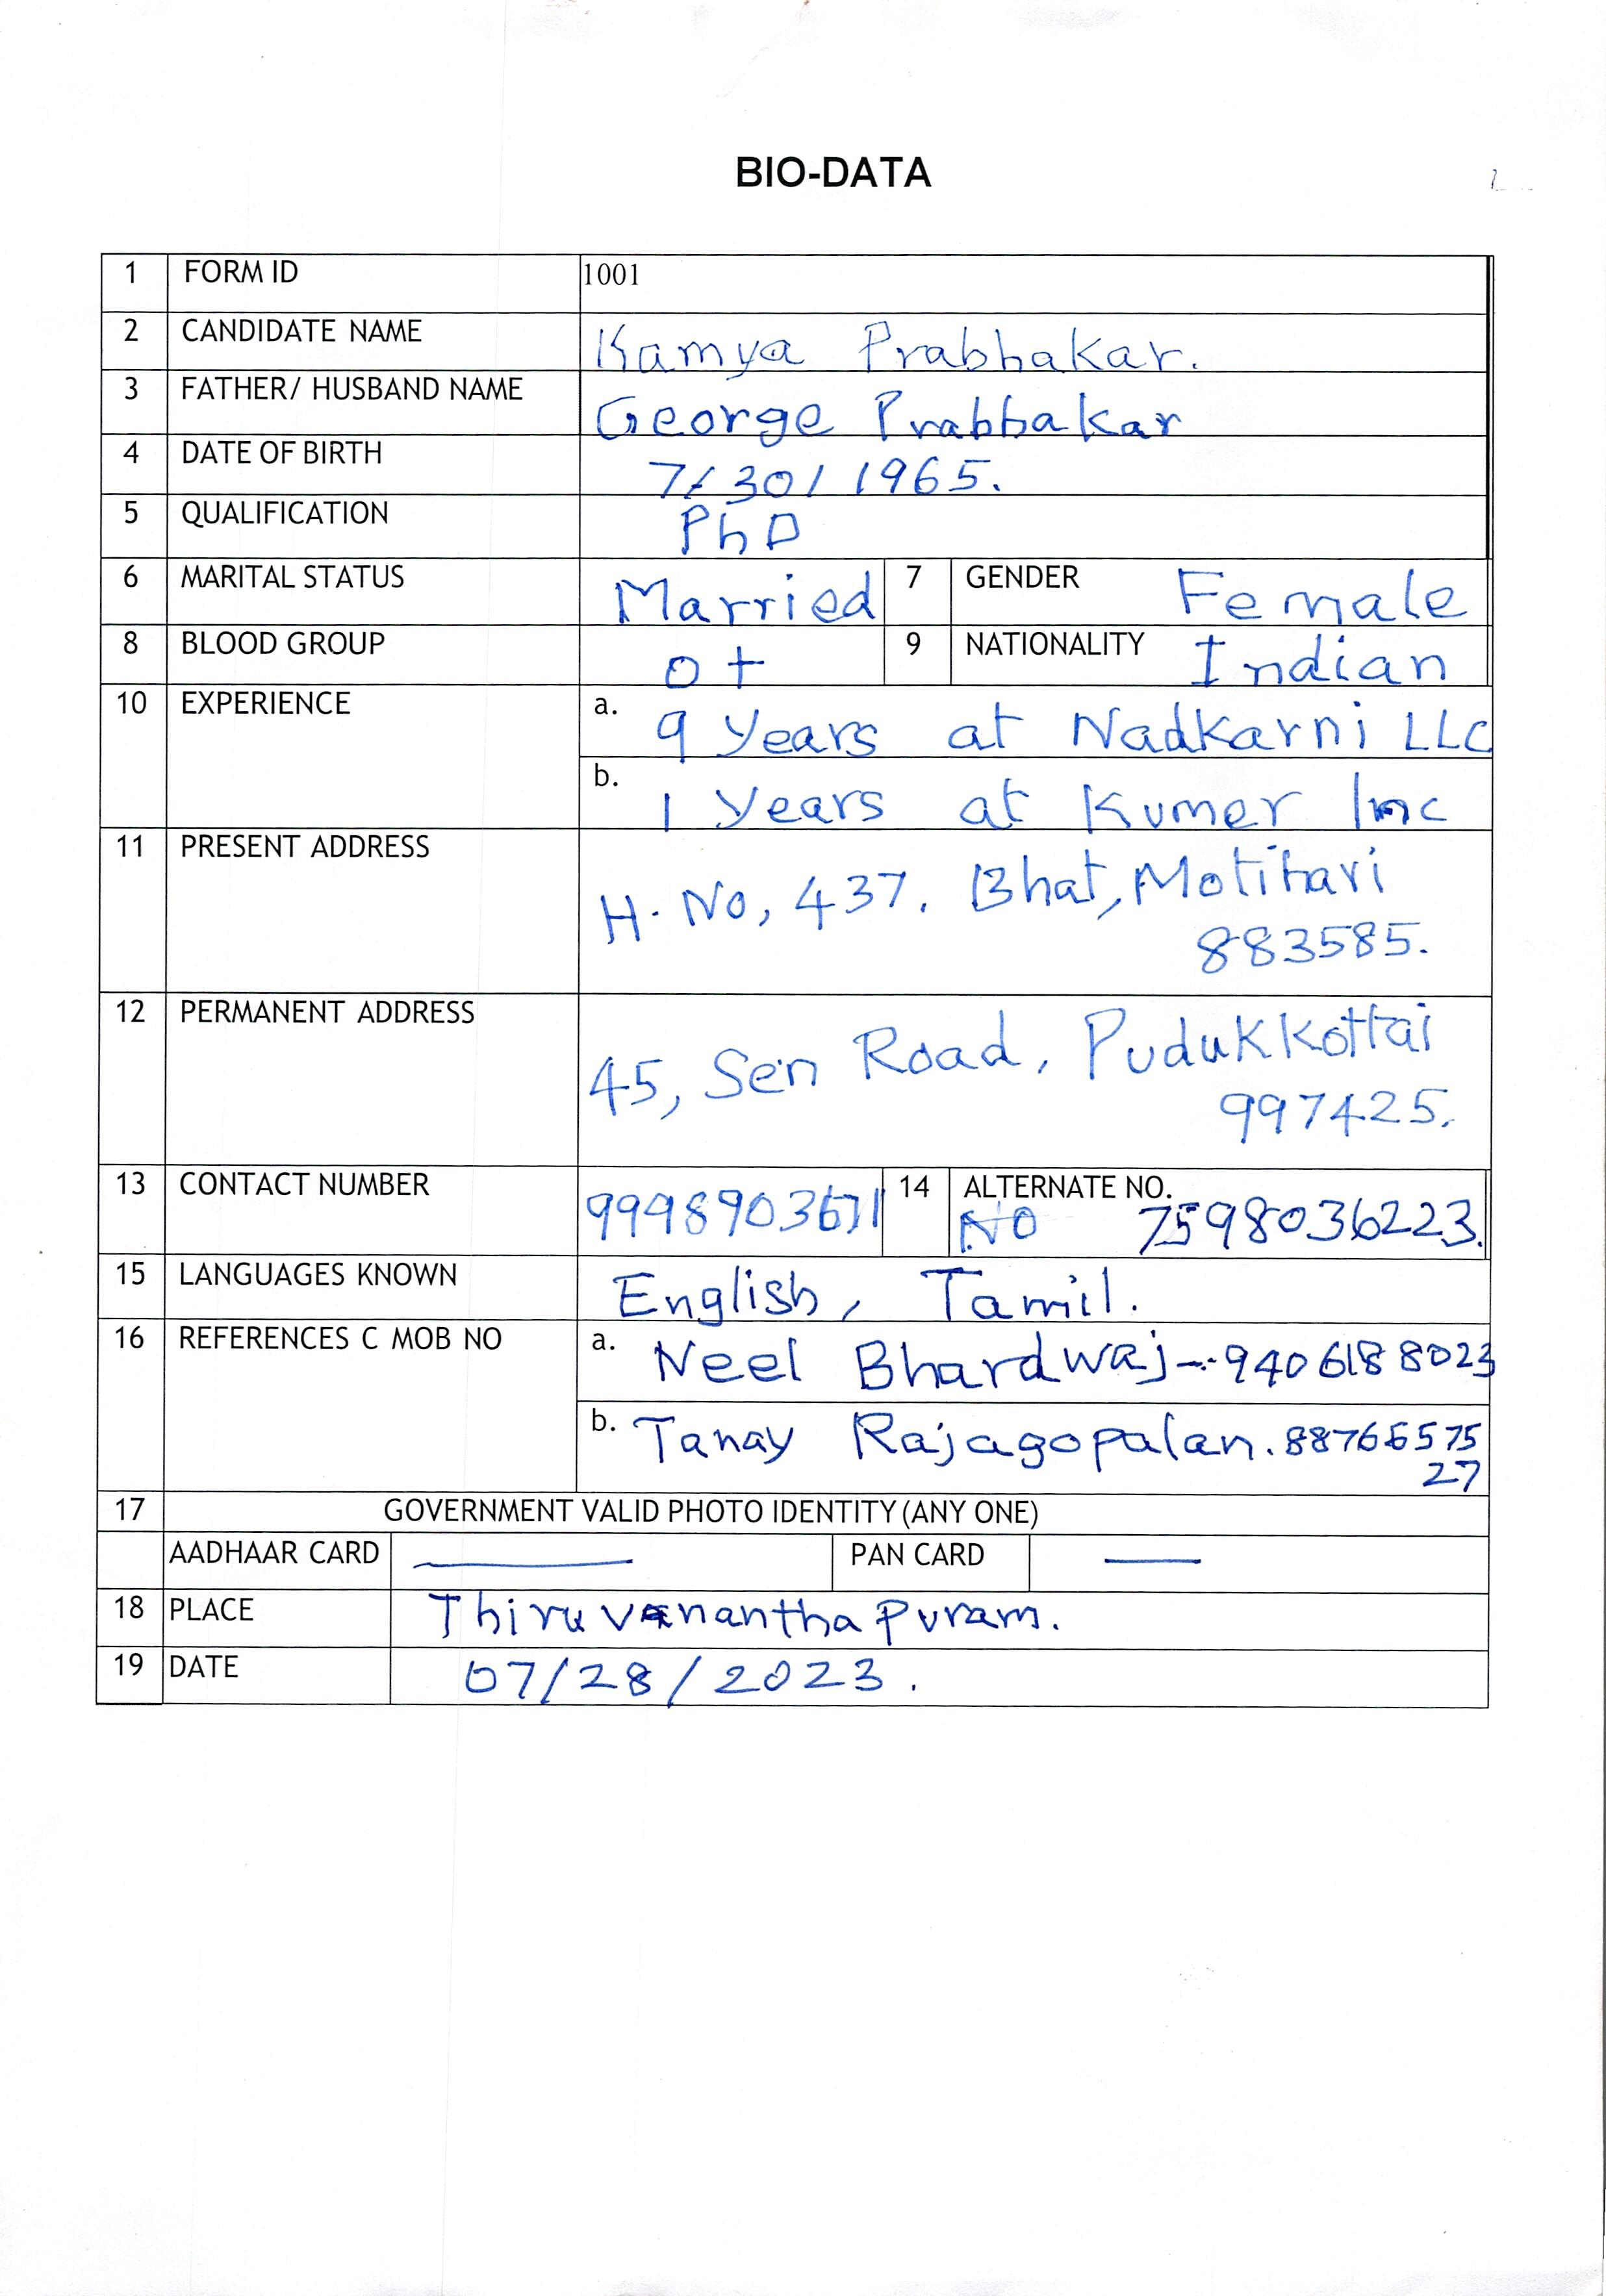 BIO-DATA
1 FORM ID 1001
2 CANDIDATE NAME Kamya Prabhakar.
3 FATHER/ HUSBAND NAME George Prabhakar
4 DATE OF BIRTH 7/30/1965.
5 QUALIFICATION PhD
6 MARITAL STATUS Married 7 GENDER Female
8 BLOOD GROUP O+ 9 NATIONALITY Indian
10 EXPERIENCE a. 9 Years at Nadkarni LLC
b. 1 Years at Kumer Inc
11 PRESENT ADDRESS H. No, 437, Bhat, Motihari
883585.
12 PERMANENT ADDRESS 45, Sen Road, Pudukkottai
997425.
13 CONTACT NUMBER 9998903671 14 ALTERNATE NO.
NO 7598036223.
15 LANGUAGES KNOWN English, Tamil.
16 REFERENCES C MOB NO a. Neel Bhardwaj - 9406188023
b. Tanay Rajagopalan. 88766575
27
17 GOVERNMENT VALID PHOTO IDENTITY (ANY ONE)
AADHAAR CARD — PAN CARD —
18 PLACE Thiruvananthapuram.
19 DATE 07/28/2023.